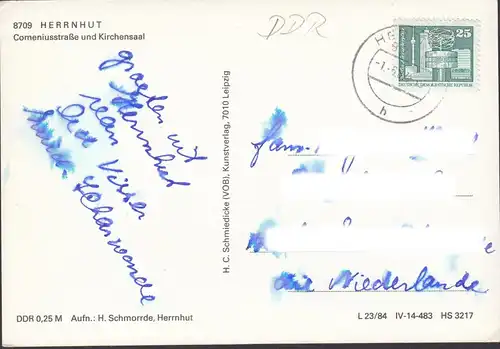 8709 HERRNHUT
Comeniusstraße und Kirchensaal
DDR
25
DEUTSCHE DEMOKRATISCHE REPUBLIK
groeten uit
Herrnhut
van
Visser
Scharwonde
H. C. Schmiedicke (VOB), Kunstverlag, 7010 Leipzig
Fam.
die Niederlande
DDR 0,25 M Aufn.: H. Schmorrde, Herrnhut
L 23/84 IV-14-483 HS 3217